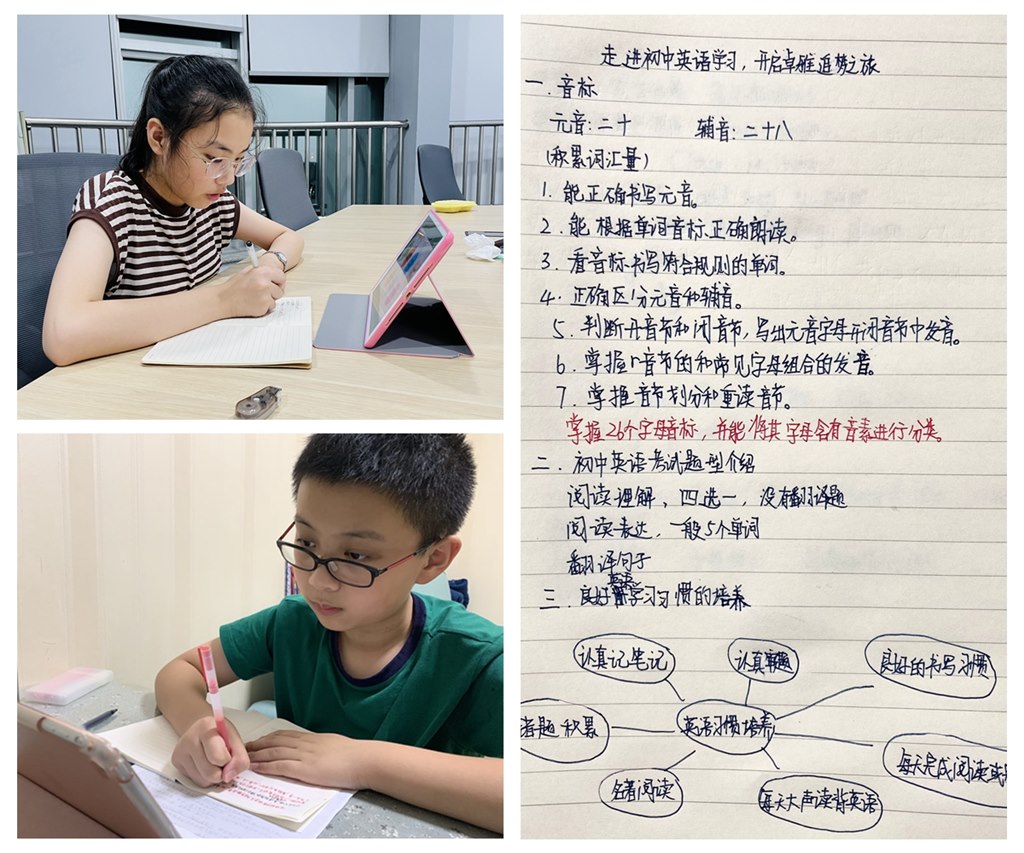 走进初中英语学习，开启卓雅追梦之旅
一．音标
元音：二十 辅音：二十八
（积累词汇量）
1．能正确书写元音。
2．能根据单词音标正确朗读。
3．看音标书写符合规则的单词。
4．正确区分元音和辅音。
5．判断开音节和闭音节，写出元音字母开闭音节中发音。
6．掌握r音节的和常见字母组合的发音。
7．掌握音节划分和重读音节。
掌握26个字母音标，并能将其字母含有音素进行分类。
二．初中英语考试题型介绍
阅读理解，四选一，没有翻译题
阅读表达，一般5个单词
翻译句子
三．良好英语学习习惯的培养
认真记笔记
认真审题
良好的书写习惯
错题积累
英语习惯培养
每天完成阅读
名著阅读
每天大声读背英语